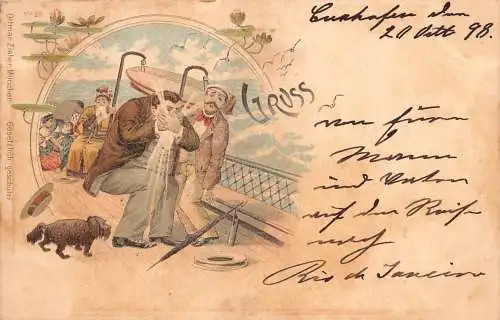 Cuxhafen den
20 Okt 98.
GRUSS
an Ihren
Mann
und Vater
auf der Reise
nach
Rio de Janeiro
Ottmar Zieher, München
Gesetzlich geschützt